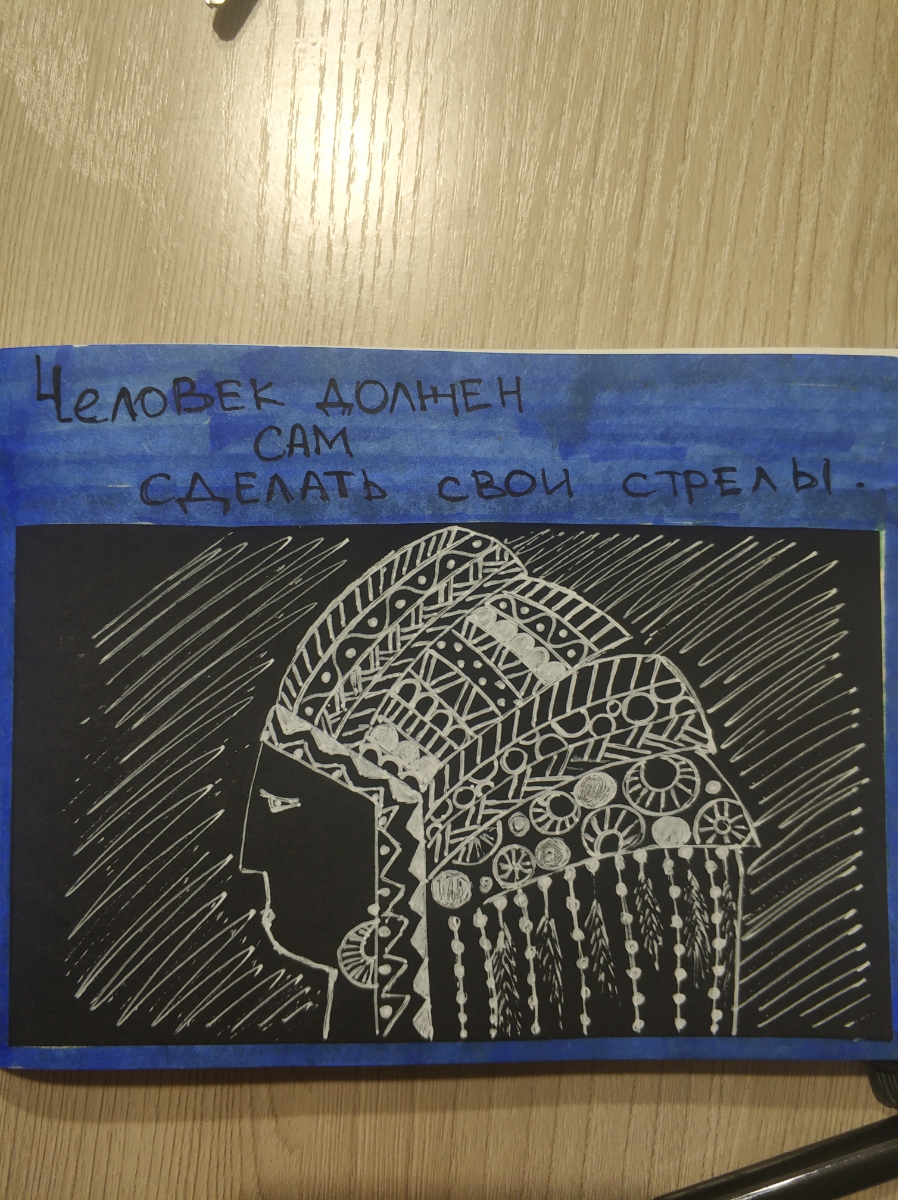 Человек должен
сам
сделать свои стрелы.